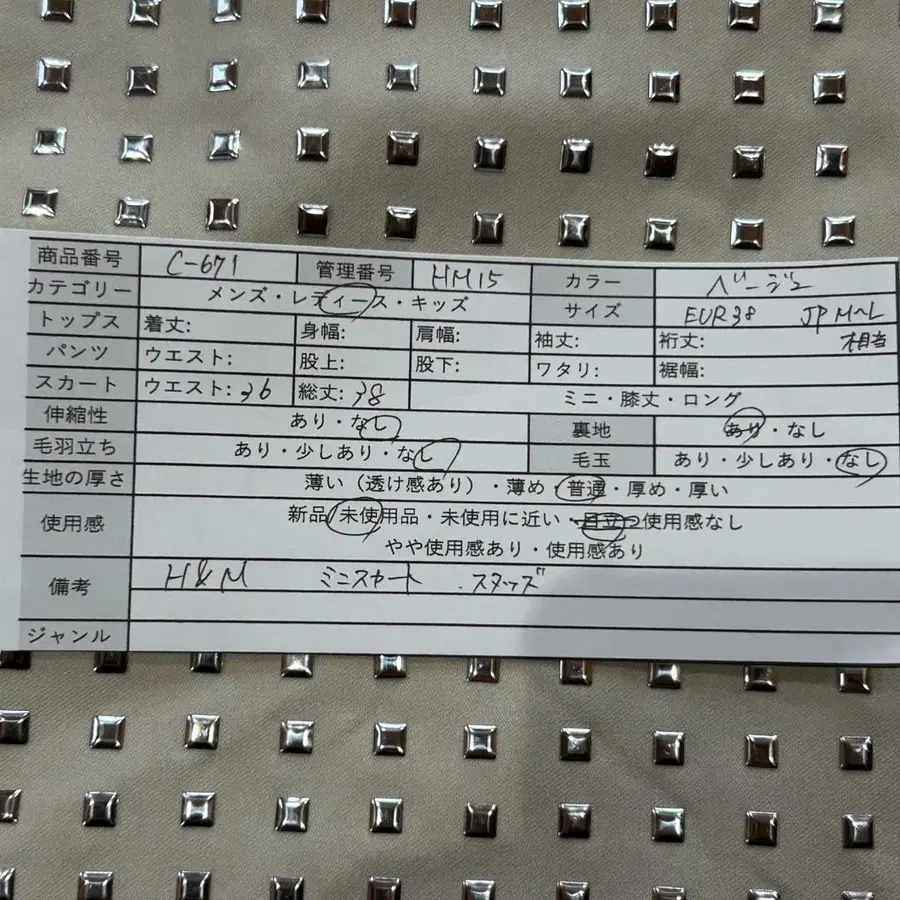 商品番号 C-671 管理番号 HM15 カラー ベージュ
カテゴリー メンズ・レディース・キッズ サイズ EUR38 JP M~L 相当
トップス 着丈: 身幅: 肩幅: 袖丈: 裄丈:
パンツ ウエスト: 股上: 股下: ワタリ: 裾幅:
スカート ウエスト:36 総丈:38 ミニ・膝丈・ロング
伸縮性 あり・なし 裏地 あり・なし
毛羽立ち あり・少しあり・なし 毛玉 あり・少しあり・なし
生地の厚さ 薄い(透け感あり)・薄め・普通・厚め・厚い
使用感 新品/未使用品・未使用に近い・目立つ使用感なし
やや使用感あり・使用感あり
備考 H&M ミニスカート .スタッズ
ジャンル